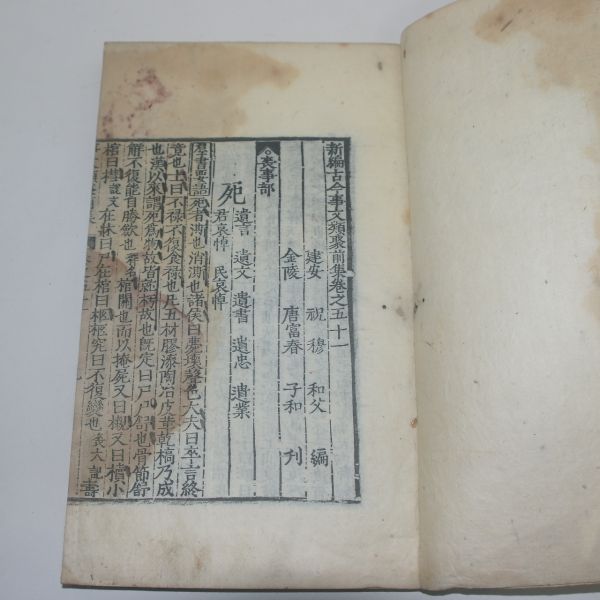 新編古今事文類聚前集卷之五十一
建安 祝穆 和父 編
金陵 唐富春 子和 刊
喪事部
死 遺言 遺文 遺書 遺忠 遺業
君哀悼 民哀悼
群書要語死者澌也消澌也諸侯曰薨壞聲也大夫曰卒言終
竟也士曰不禄不復食禄也凡五材膠漆陶冶皮革乾槁乃成
也漢以來謂死爲物故皆
故也既定曰尸尸舒也骨節舒
解不復能自勝斂也釋名棺關也
而以掩屍又曰櫬又曰櫝小
棺曰槥說文在牀曰尸在棺曰柩柩究曰不復變也喪大記壽